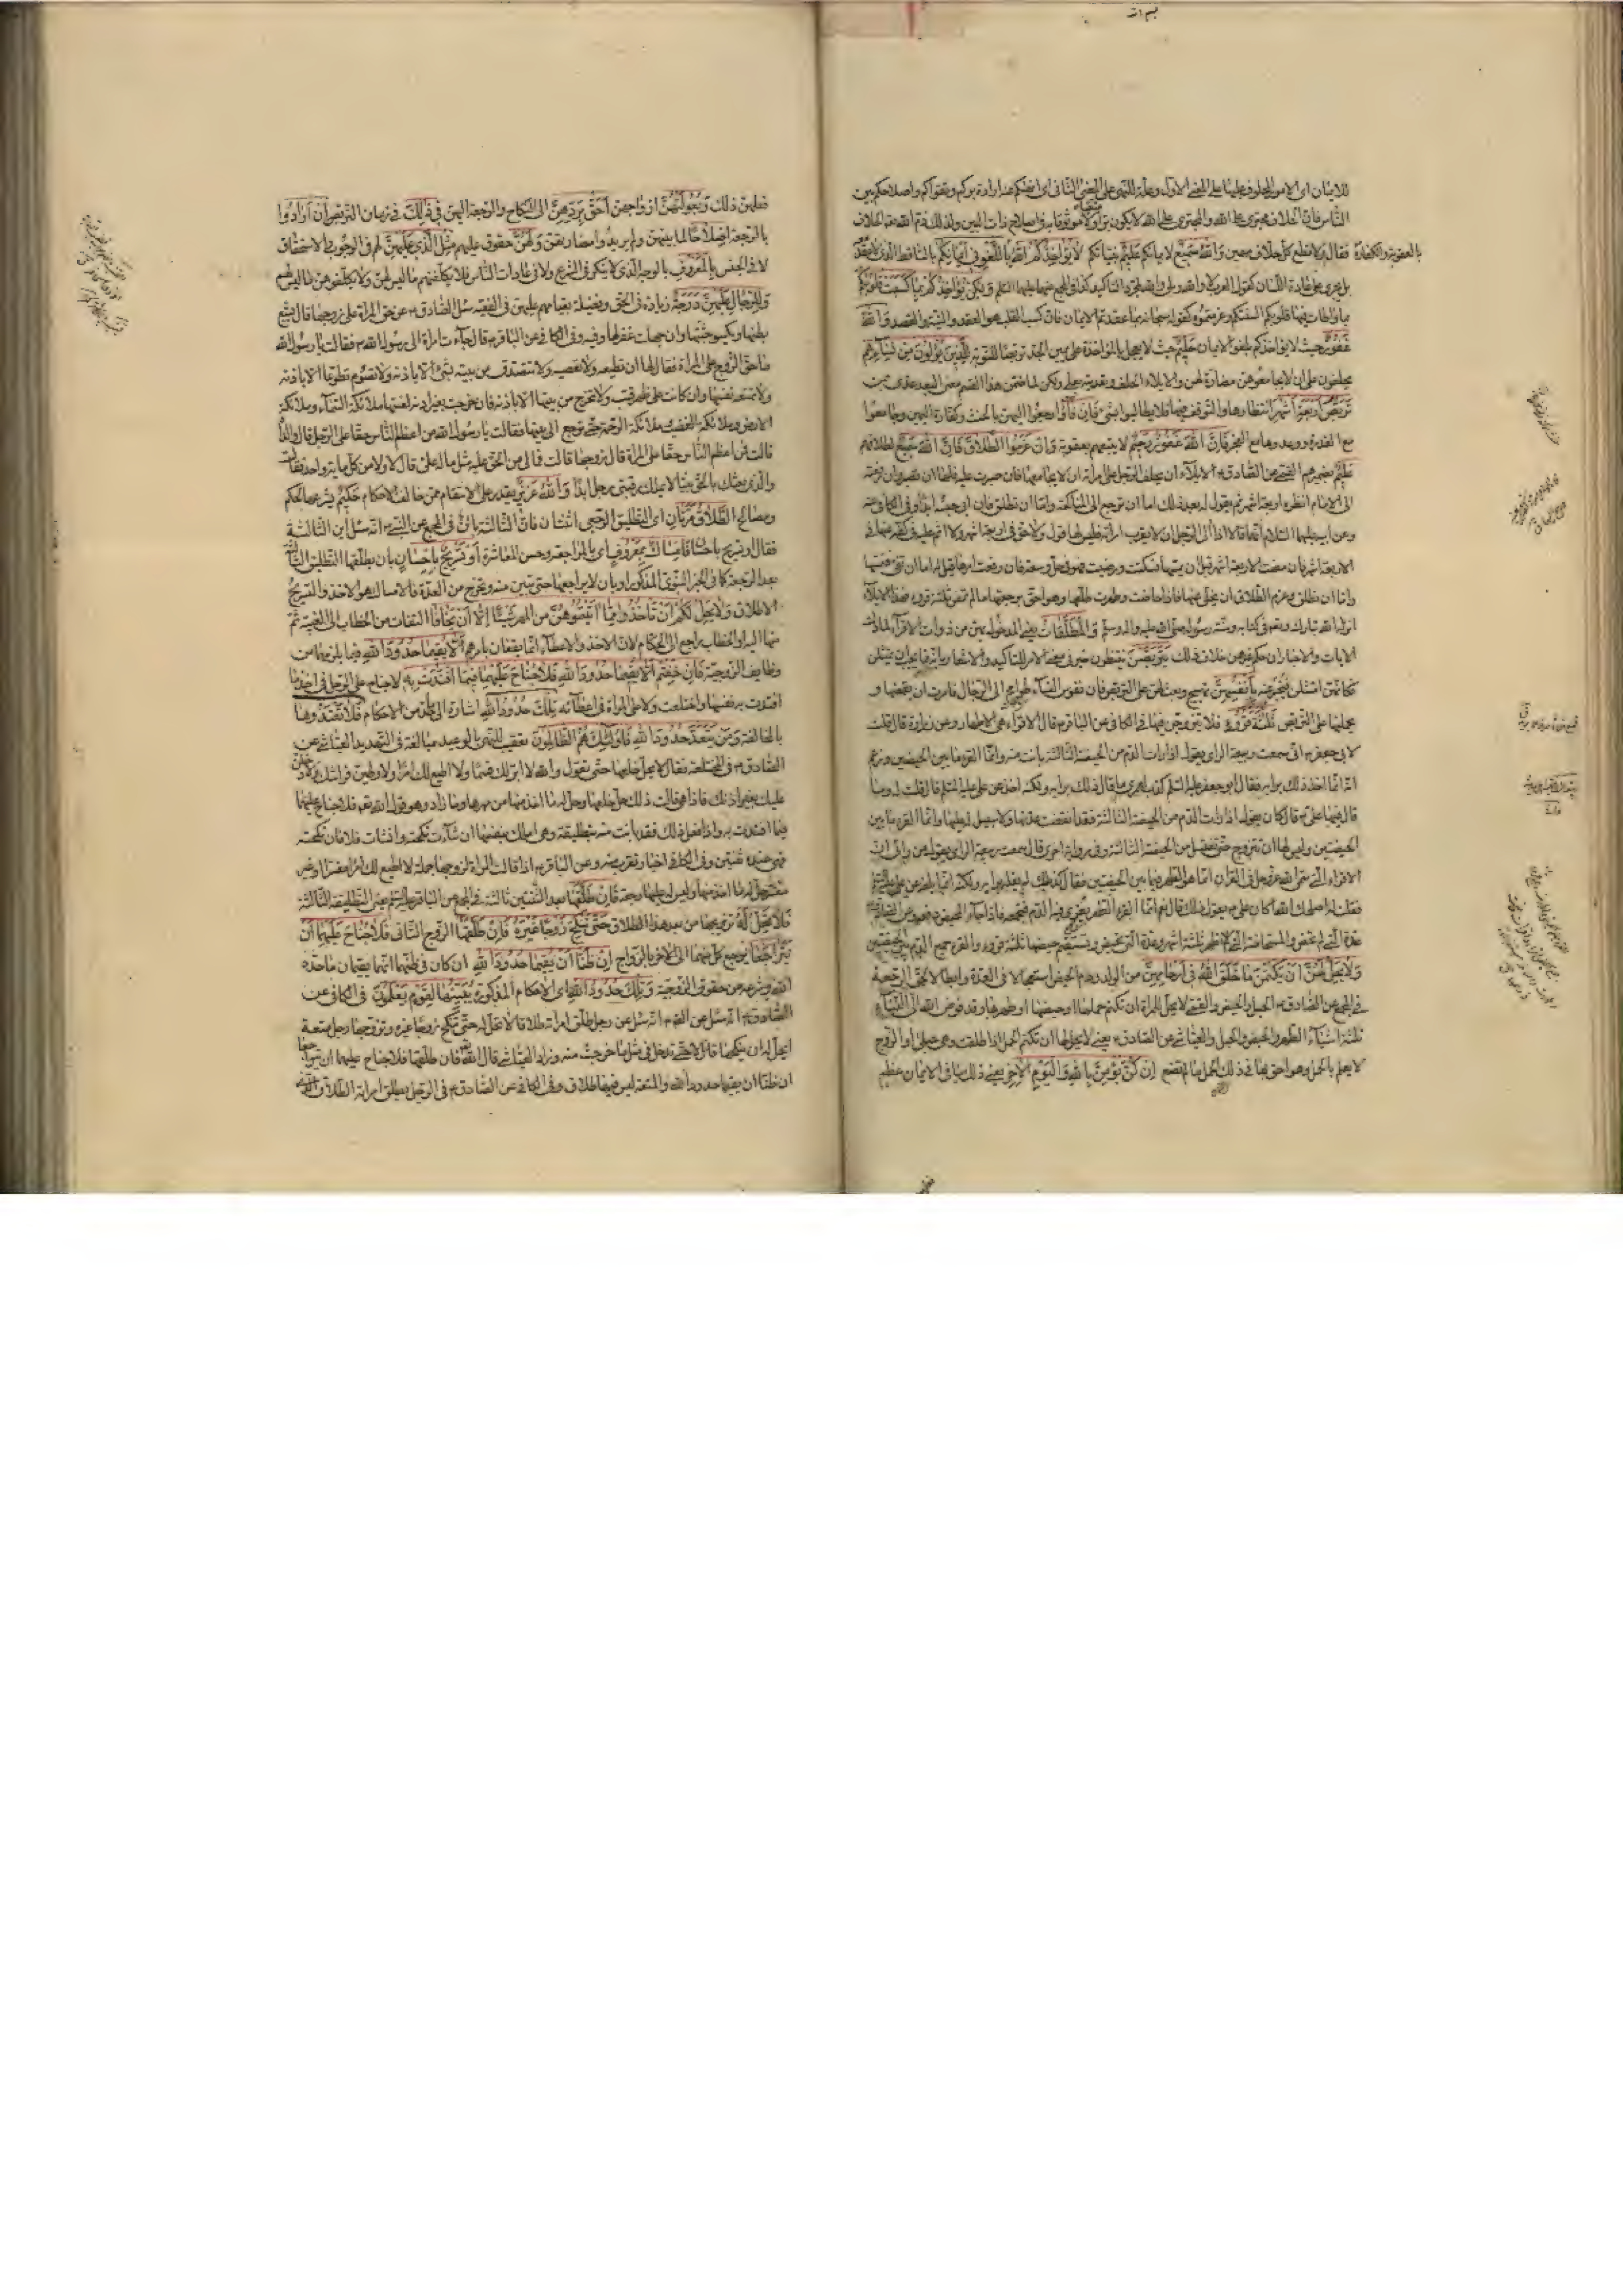 للايمان اى الامور المحلوف عليها على المعنى الاول وعلة للنهى على المعنى الثانى اى انهيكم عنه ارادة بركم وتقواكم واصلاحكم بين
الناس فان الحلاف مجترى على الله والمجترى على الله لا يكون برا ولا موثوقا به فى اصلاح ذات البين ولذلك ذم الله الحلاف
فقال ولا تطع كل حلاف مهين والله سميع لايمانكم عليم بنياتكم لا يؤاخذكم الله باللغو فى ايمانكم بالساقط الذى لا عقد
بالعقوبة والكفارة
بل يجرى على عادة اللسان كقول العرب لا والله وبلى والله لمجرد التاكيد كذا فى المجمع عنهما عليهما السلم ولكن يؤاخذكم بما كسبت قلوبكم
بما واطات فيها قلوبكم السنتكم وعزمتموه كقوله سبحانه بما عقدتم الايمان فان كسب القلب هو العقد والنية والقصد والله
غفور حيث لا يؤاخذكم بلغو الايمان حليم حيث لا يعجل بالمؤاخذة على يمين الجد تربصا للتوبة للذين يؤلون من نسائهم
يحلفون على ان لا يجامعوهن مضارة لهن والايلاء الحلف وتعديته بعلى ولكن لما ضمن هذا القسم معنى البعد عدى بمن
تربص اربعة اشهر انتظارها والتوقف فيها فلا يطالبوا بشئ فان فاؤا رجعوا اليهن بالحنث وكفارة اليمين وجامعوا
مع القدرة ووعدوها مع العجز فان الله غفور رحيم لا يتبعهم بعقوبة وان عزموا الطلاق فان الله سميع لطلاقهم
عليم بضميرهم القمى عن الصادق ع الايلاء ان يحلف الرجل على امراته ان لا يجامعها فان صبرت عليه فلها ان تصبر وان رفعته
الى الامام انظره اربعة اشهر ثم يقول له بعد ذلك اما ان ترجع الى المناكحة واما ان تطلق فان ابى حبسه ابدا وفى الكافى عنه
وعن ابيه عليهما السلام انهما قالا اذا الى الرجل ان لا يقرب امراته فليس لها قول ولا حق فى اربعة اشهر ولا اثم عليه فى كفه عنها فى
الاربعة اشهر فان مضت الاربعة اشهر قبل ان يمسها فسكتت ورضيت فهو فى حل وسعة فان رفعت امرها قيل له اما ان تفئ فتمسها
واما ان تطلق وعزم الطلاق ان يخلى عنها فاذا حاضت وطهرت طلقها وهو احق برجعتها ما لم تمض ثلثة قروء فهذا الايلاء
انزله الله تبارك وتعالى فى كتابه وسنة رسوله صلى الله عليه واله وسلم والمطلقات يعنى المدخول بهن من ذوات الاقراء لما دلت
الايات والاخبار ان حكم غيرهن خلاف ذلك يتربصن ينتظرن خبر فى معنى الامر للتاكيد والاشعار بانه مما يجب ان يمتثلن
فكانهن امتثلن فيخبر عنه بانفسهن تهييج وبعث لهن على التربص فان نفوس النساء طوامح الى الرجال فامرن ان يقمعنها و
يحملنها على التربص ثلثة قروء فلا يتزوجن فيها فى الكافى عن الباقر ع قال الاقراء هى الاطهار وعن زرارة قال قلت
لابى جعفر ع انى سمعت ربيعة الراى يقول اذا رات الدم من الحيضة الثالثة بانت منه وانما القرء ما بين الحيضتين وزعم
انه انما اخذ ذلك برايه فقال ابو جعفر عليه السلم كذب لعمرى ما قال ذلك برايه ولكنه اخذ عن على عليه السلم قال قلت له وما
قال فيها على ع قال كان يقول اذا رات الدم من الحيضة الثالثة فقد انقضت عدتها ولا سبيل له عليها وانما القرء ما بين
الحيضتين وليس لها ان تتزوج حتى تغتسل من الحيضة الثالثة وفى رواية اخرى قال سمعت ربيعة الراى يقول من رايى ان
الاقراء التى سمى الله عز وجل فى القران انما هو الطهر فيما بين الحيضتين فقال كذب لم يقله برايه ولكنه انما بلغه عن على عليه السلم
فقلت له اصلحك الله اكان على ع يقول ذلك فقال نعم انما القرء الطهر يقرى فيه الدم فيجمعه فاذا جاء المحيض دفعه وعن الصادق ع
عدة التى لم تحض والمستحاضة التى لم تطهر ثلثة اشهر وعدة التى تحيض ويستقيم حيضها ثلثة قروء والقرء جمع الدم بين الحيضتين
ولا يحل لهن ان يكتمن ما خلق الله فى ارحامهن من الولد ودم الحيض استعجالا فى العدة وابطالا لحق الرجعة
فى المجمع عن الصادق ع الحبل والحيض والقمى لا يحل للمراة ان تكتم حملها او حيضها او طهرها وقد فوض الله الى النساء
ثلثة اشياء الطهر والحيض والحبل والعياشى عن الصادق ع يعنى لا يحل لها ان تكتم الحمل اذا طلقت وهى حبلى او الزوج
لا يعلم بالحمل وهو احق بها فى ذلك الحمل ما لم تضع ان كن يؤمن بالله واليوم الاخر يعنى ذلك ينافى الايمان عظيم
فعلهن ذلك وبعولتهن ازواجهن احق بردهن الى النكاح والرجعة اليهن فى ذلك فى زمان التربص ان ارادوا
بالرجعة اصلاحا لما بينهن ولم يريدوا مضارتهن ولهن حقوق عليهم مثل الذى عليهن لهم فى الوجوب والاستحقاق
لا فى الجنس بالمعروف بالوجه الذى لا ينكر فى الشرع ولا فى عادات الناس فلا يكلفنهم ما ليس لهن ولا يكلفوهن ما ليس لهم
وللرجال عليهن درجة زيادة فى الحق وفضيلة بقيامهم عليهن فى الفقيه سئل الصادق ع عن حق المراة على زوجها قال يشبع
بطنها ويكسو جثتها وان جهلت غفر لها وفيه وفى الكافى عن الباقر ع قال جاءت امراة الى رسول الله ص فقالت يا رسول الله
ما حق الزوج على المراة فقال لها ان تطيعه ولا تعصيه ولا تتصدق من بيته بشئ الا باذنه ولا تصوم تطوعا الا باذنه
ولا تمنعه نفسها وان كانت على ظهر قتب ولا تخرج من بيتها الا باذنه فان خرجت بغير اذنه لعنتها ملائكة السماء وملائكة
الارض وملائكة الغضب وملائكة الرحمة حتى ترجع الى بيتها فقالت يا رسول الله من اعظم الناس حقا على الرجل قال والداه
قالت فمن اعظم الناس حقا على المراة قال زوجها قالت فما لى من الحق عليه مثل ما له على قال لا ولا من كل مائة واحد فقالت
والذى بعثك بالحق نبيا لا يملك رقبتى رجل ابدا والله عزيز يقدر على الانتقام ممن خالف الاحكام حكيم يشرعها لحكم
ومصالح الطلاق مرتان اى التطليق الرجعى اثنتان فان الثالثة بائن فى المجمع عن النبى ص انه سئل اين الثالثة
فقال او تسريح باحسان فامساك بمعروف اى بالمراجعة وحسن المعاشرة او تسريح باحسان بان يطلقها التطليقة الثالثة
بعد الرجعة كما فى الخبر النبوى المذكور او بان لا يراجعها حتى تبين منه وتخرج من العدة فالامساك هو الاخذ والتسريح
الاطلاق ولا يحل لكم ان تاخذوا مما اتيتموهن من المهر شيئا الا ان يخافا التفات من الخطاب الى الغيبة ثم
منها اليه او الخطاب راجع الى الحكام لان الاخذ والاعطاء انما يقعان بامرهم الا يقيما حدود الله فيما يلزمهما من
وظايف الزوجية فان خفتم الا يقيما حدود الله فلا جناح عليهما فيما افتدت به لا جناح على الرجل فى اخذ ما
افتدت به نفسها واختلعت ولا على المراة فى اعطائه تلك حدود الله اشارة الى ما حد من الاحكام فلا تعتدوها
بالمخالفة ومن يتعد حدود الله فاولئك هم الظالمون تعقيب للنهى بالوعيد مبالغة فى التهديد العياشى عن
الصادق ع فى المختلعة فقال لا يحل خلعها حتى تقول والله لا ابر لك قسما ولا اطيع لك امرا ولا وطين فراشك ولادخلن
عليك بغير اذنك فاذا هى قالت ذلك حل خلعها وحل له ما اخذ منها من مهرها وما زاد وهو قول الله تعالى فلا جناح عليهما
فيما افتدت به واذا فعل ذلك فقد بانت منه بتطليقة وهى املك بنفسها ان شاءت نكحته وان شاءت فلا فان نكحته
فهى عنده على ثنتين وفى الكافى اخبار تقرب منه وعن الباقر ع اذا قالت المراة لزوجها جملة لا اطيع لك امرا مفسرا او غير
مفسر حل له ما اخذ منها وليس له عليها رجعة فان طلقها بعد الثنتين ثالثة فى المجمع عن الباقر عليه السلم يعنى التطليقة الثالثة
فلا تحل له تزويجها من بعد هذا الطلاق حتى تنكح زوجا غيره فان طلقها الزوج الثانى فلا جناح عليهما ان
يتراجعا يرجع كل منهما الى الاخر بالزواج ان ظنا ان يقيما حدود الله ان كان فى ظنهما انهما يقيمان ما حده
الله وشرعه من حقوق الزوجية وتلك حدود الله اى الاحكام المذكورة يبينها لقوم يعلمون فى الكافى عن
الصادق ع انه سئل عن رجل طلق امراته طلاقا لا تحل له حتى تنكح زوجا غيره وتزوجها رجل متعة
ايحل له ان ينكحها قال لا حتى تدخل فى مثل ما خرجت منه وزاد العياشى قال الله فان طلقها فلا جناح عليهما ان يتراجعا
ان ظنا ان يقيما حدود الله والمتعة ليس فيها طلاق وفى الكافى عن الصادق ع فى الرجل يطلق امراته الطلاق